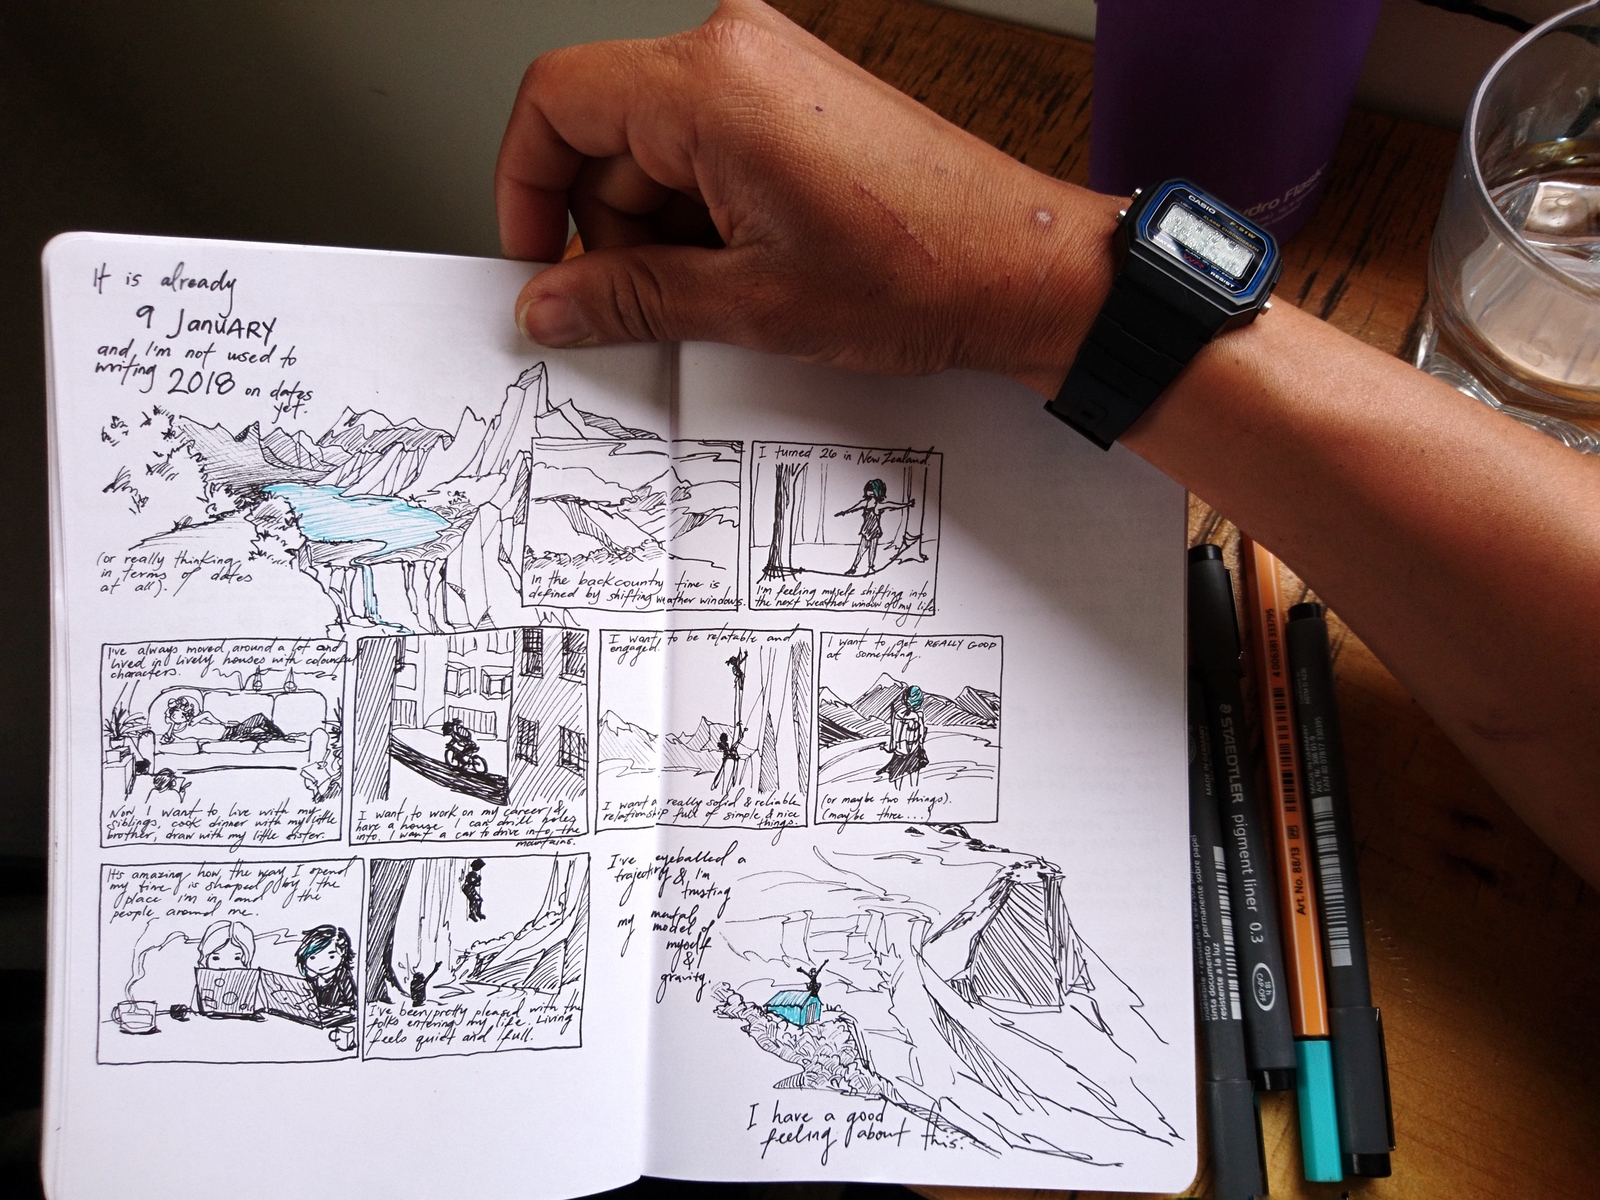 It is already
9 JANUARY
and I'm not used to
writing 2018 on dates
yet.
(or really thinking
in terms of dates
at all).
In the backcountry time is
defined by shifting weather windows.
I turned 26 in New Zealand.
I'm feeling myself shifting into
the next weather window of my life.
I've always moved around a lot and
lived in lively houses with colourful
characters.
Now, I want to live with my
siblings, cook dinner with my little
brother, draw with my little sister.
I want to work on my career, &
have a house I can drill holes
into. I want a car to drive into the
mountains.
I want to be relatable and
engaged.
I want a really solid & reliable
relationship full of simple & nice
things.
I want to get REALLY GOOD
at something.
(or maybe two things).
(maybe three...)
It's amazing how the way I spend
my time is shaped by the
place I'm in, and the
people around me.
I've been pretty pleased with the
folks entering my life. Living
feels quiet and full.
I've eyeballed a
trajectory & I'm
trusting
my mental
model of
myself
&
gravity.
I have a good
feeling about this.
CASIO
F-91W
WR
RESIST
ydro Flask
STAEDTLER pigment liner 0.3
Art. No. 88/13